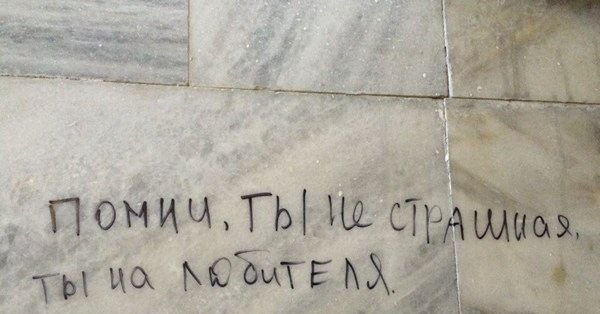 Помни, ты не страшная,
ты на любителя.